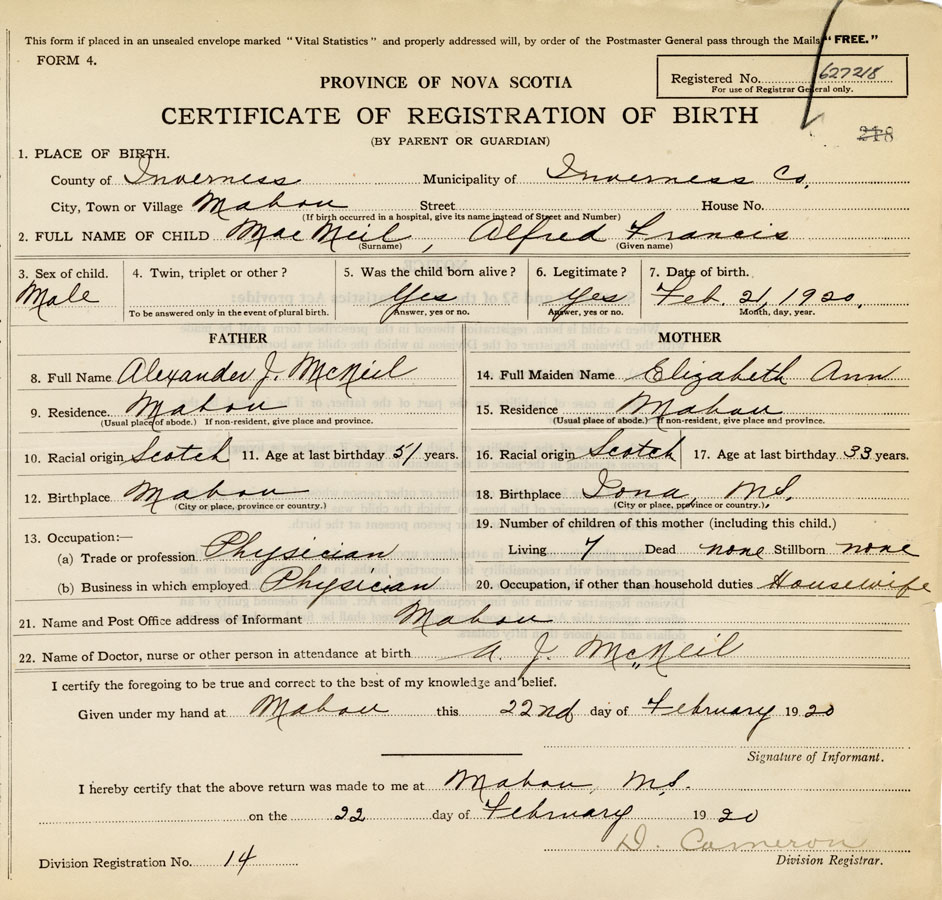 This form if placed in an unsealed envelope marked "Vital Statistics" and properly addressed will, by order of the Postmaster General pass through the Mails "FREE."
FORM 4.
Registered No. 627218
For use of Registrar General only.
PROVINCE OF NOVA SCOTIA
CERTIFICATE OF REGISTRATION OF BIRTH
218
(BY PARENT OR GUARDIAN)
1. PLACE OF BIRTH.
County of Inverness Municipality of Inverness Co.
City, Town or Village Mabou Street House No.
(If birth occurred in a hospital, give its name instead of Street and Number)
2. FULL NAME OF CHILD MacNeil, Alfred Francis
(Surname) (Given name)
3. Sex of child. 4. Twin, triplet or other? 5. Was the child born alive? 6. Legitimate? 7. Date of birth.
Male Yes Yes Feb. 21, 1920.
To be answered only in the event of plural birth. Answer, yes or no. Answer, yes or no. Month, day, year.
FATHER MOTHER
8. Full Name Alexander J. McNeil 14. Full Maiden Name Elizabeth Ann
9. Residence Mabou 15. Residence Mabou
(Usual place of abode.) If non-resident, give place and province. (Usual place of abode.) If non-resident, give place and province.
10. Racial origin Scotch 11. Age at last birthday 51 years. 16. Racial origin Scotch 17. Age at last birthday 33 years.
12. Birthplace Mabou 18. Birthplace Iona, N.S.
(City or place, province or country.) (City or place, province or country.)
13. Occupation:— 19. Number of children of this mother (including this child.)
(a) Trade or profession Physician Living 7 Dead none Stillborn none
(b) Business in which employed Physician 20. Occupation, if other than household duties Housewife
21. Name and Post Office address of Informant Mabou
22. Name of Doctor, nurse or other person in attendance at birth A. J. McNeil
I certify the foregoing to be true and correct to the best of my knowledge and belief.
Given under my hand at Mabou this 22nd day of February 1920
Signature of Informant.
I hereby certify that the above return was made to me at Mabou, N.S.
on the 22 day of February 1920
D. Cameron
Division Registration No. 14 Division Registrar.